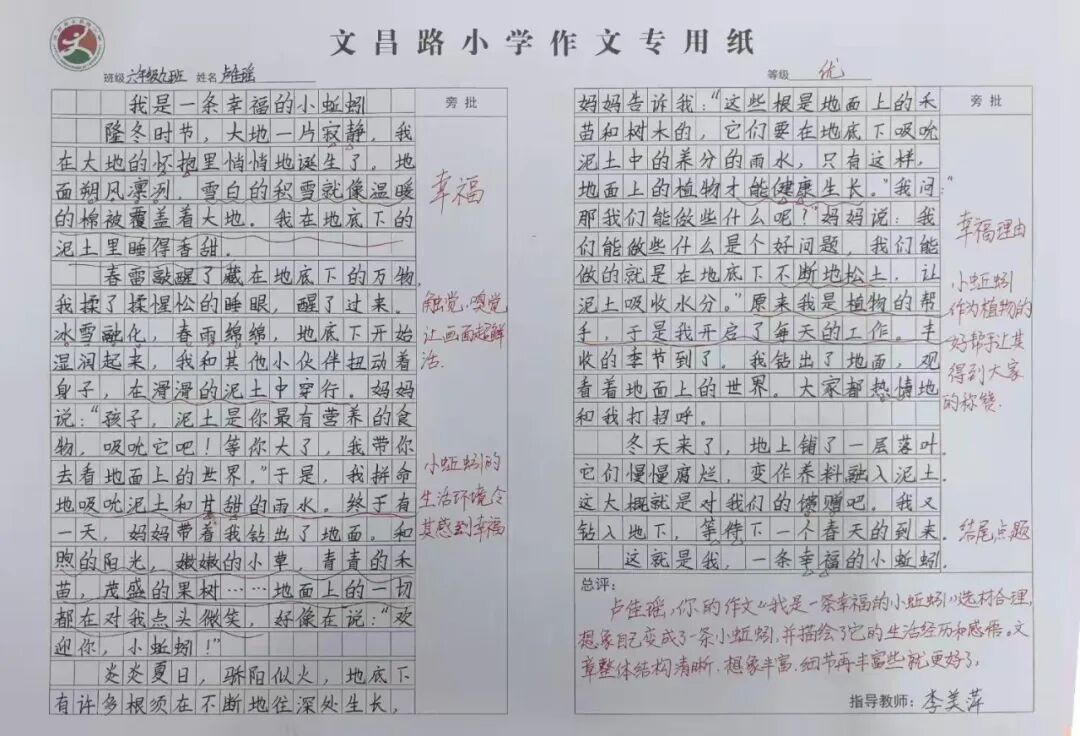 文昌路小学作文专用纸
班级 六年级九班 姓名 卢佳瑶
等级 优
旁批
我是一条幸福的小蚯蚓
隆冬时节，大地一片寂静，我
在大地的怀抱里悄悄地诞生了。地
面朔风凛冽，雪白的积雪就像温暖
的棉被覆盖着大地。我在地底下的
泥土里睡得香甜.
春雷敲醒了藏在地底下的万物，
我揉了揉惺忪的睡眼，醒了过来.
冰雪融化，春雨绵绵，地底下开始
湿润起来，我和其他小伙伴扭动着
身子，在滑滑的泥土中穿行。妈妈
说：“孩子，泥土是你最有营养的食
物，吸吮它吧！等你大了，我带你
去看地面上的世界。”于是，我拼命
地吸吮泥土和甘甜的雨水。终于有
一天，妈妈带着我钻出了地面。和
煦的阳光，嫩嫩的小草，青青的禾
苗，茂盛的果树……地面上的一切
都在对我点头微笑，好像在说：“欢
迎你，小蚯蚓！”
炎炎夏日，骄阳似火，地底下
有许多根须在不断地往深处生长，
幸福
触觉、嗅觉，
让画面超鲜
活.
小蚯蚓的
生活环境令
其感到幸福
旁批
妈妈告诉我：“这些根是地面上的禾
苗和树木的，它们要在地底下吸吮
泥土中的养分的雨水，只有这样，
地面上的植物才能健康生长。”我问：“
那我们能做些什么呢？”妈妈说：我
们能做些什么是个好问题，我们能
做的就是在地底下不断地松土，让
泥土吸收水分。”原来我是植物的帮
手，于是我开启了每天的工作。丰
收的季节到了。我钻出了地面，观
看着地面上的世界。大家都热情地
和我打招呼。
冬天来了，地上铺了一层落叶.
它们慢慢腐烂，变作养料融入泥土.
这大概就是对我们的馈赠吧。我又
钻入地下，等待下一个春天的到来.
这就是我，一条幸福的小蚯蚓.
幸福理由
小蚯蚓
作为植物的
好帮手让其
得到大家
的称赞.
结尾点题
总评：
卢佳瑶，你的作文《我是一条幸福的小蚯蚓》选材合理，
想象自己变成了一条小蚯蚓，并描绘了它的生活经历和感悟。文
章整体结构清晰，想象丰富，细节再丰富些就更好了，
指导教师：李美萍